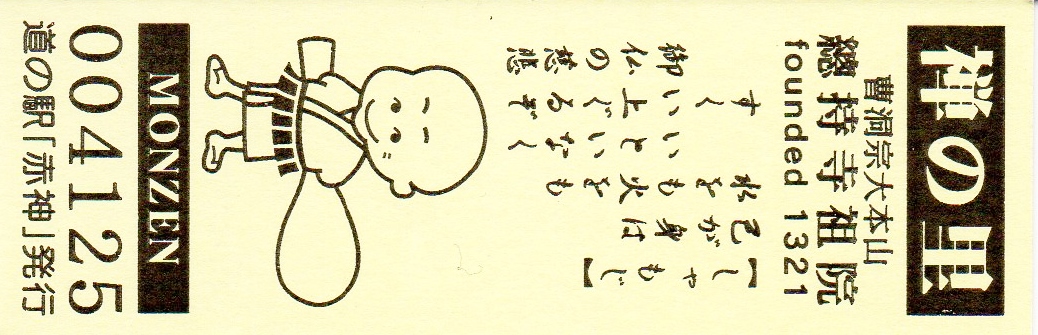 禅の里
曹洞宗大本山
總持寺祖院
founded 1321
【しゃもじ】
己が身は
水をも火をも
いといなく
すくい上ぐるぞ
御仏の慈悲
MONZEN
004125
道の駅「赤神」発行